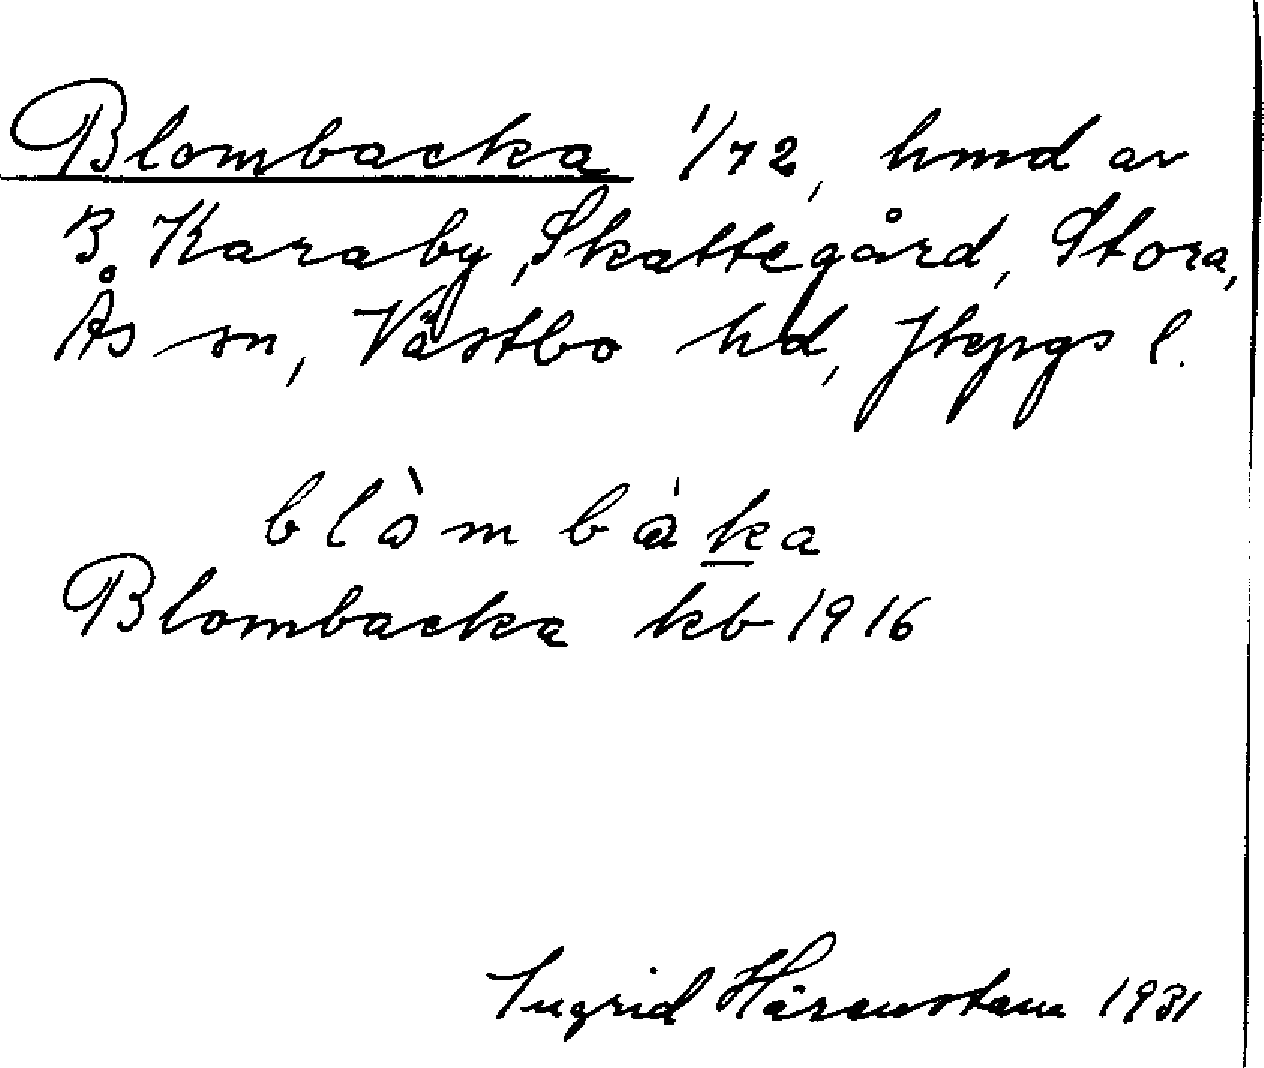 Blombacka 1/72, hmd av
3 Karaby, Skattegård, Stora,
Ås sn, Västbo hd, Jkpgs l.
blòmbàka
Blombacka kb 1916
Ingrid Härenstam 1931